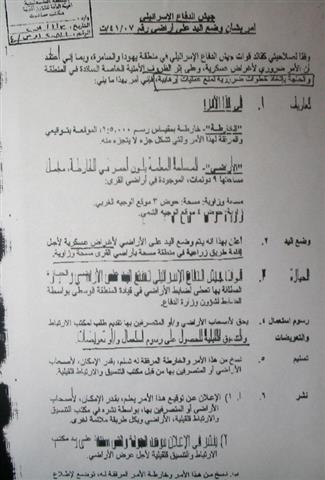 جيش الدفاع الاسرائيلي
أمر بشأن وضع اليد على أراضي رقم ٤١/٠٧/ت
وفقا لصلاحيتي كقائد قوات جيش الدفاع الإسرائيلي في منطقة يهودا والسامرة، وبما إني أعتقد
أن الأمر ضروري لأغراض عسكرية، وعلى إثر الظروف الأمنية الخاصة السائدة في المنطقة
والحاجة بإتخاذ خطوات ضرورية لمنع عمليات إرهابية، فإني آمر بهذا ما يلي:
تعاريف ١. في هذا الأمر:
"الخارطة" - خارطة بمقياس رسم ١:٥,٠٠٠، الموقعة بتوقيعي
والمرفقة لهذا الأمر والتي تشكل جزء لا يتجزء منه.
"الأراضي" - المساحة المعلمة بلون أحمر في الخارطة، مجمل
مساحتها ٩ دونمات، الموجودة في أراضي القرى:
مسحة وزاوية: مسحة: حوض ٣ موقع الوجيه الغربي
زاوية: حوض ٤ موقع الوجيه الشمي.
وضع اليد ٢. أعلن بهذا انه يتم وضع اليد على الأراضي لأغراض عسكرية لأجل
إقامة طريق زراعية في منطقة مسحة بأراضي القرى مسحة وزاوية.
الحيازة ٣.
بواسطة
الضابط لشؤون وزارة الدفاع.
رسوم استعمال ٤. يحق لأصحاب الأراضي و/أو المتصرفين بها تقديم طلب لمكاتب الارتباط
والتعويضات والتنسيق القليلية للحصول على رسوم استعمال و/أو تعويضات.
تسليم ٥. نسخ من هذا الأمر والخارطة المرفقة له تسلم، بقدر الإمكان، لأصحاب
الأراضي أو المتصرفين بها من قبل مكتب التنسيق والارتباط القليلية.
نشر ٦. أ. ١) الإعلان عن توقيع هذا الأمر يعلم، بقدر الإمكان، لأصحاب
الأراضي أو المتصرفين بها، بواسطة نشره في مكتب التنسيق
والارتباط القليلية، وفي الأراضي وبكل طريقة ملائمة أخرى.
٢) ينشر في الإعلان موعد الجولة على يد مكتب
التنسيق والارتباط القليلية لأجل عرض الأراضي.
ب. نسخ من هذا الأمر وخارطة الأمر المرفقه له، توضع لإطلاع